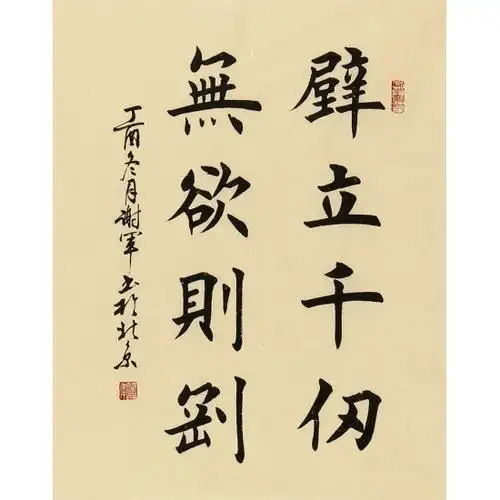 壁立千仞
無欲則剛
丁酉冬月謝軍書於北京